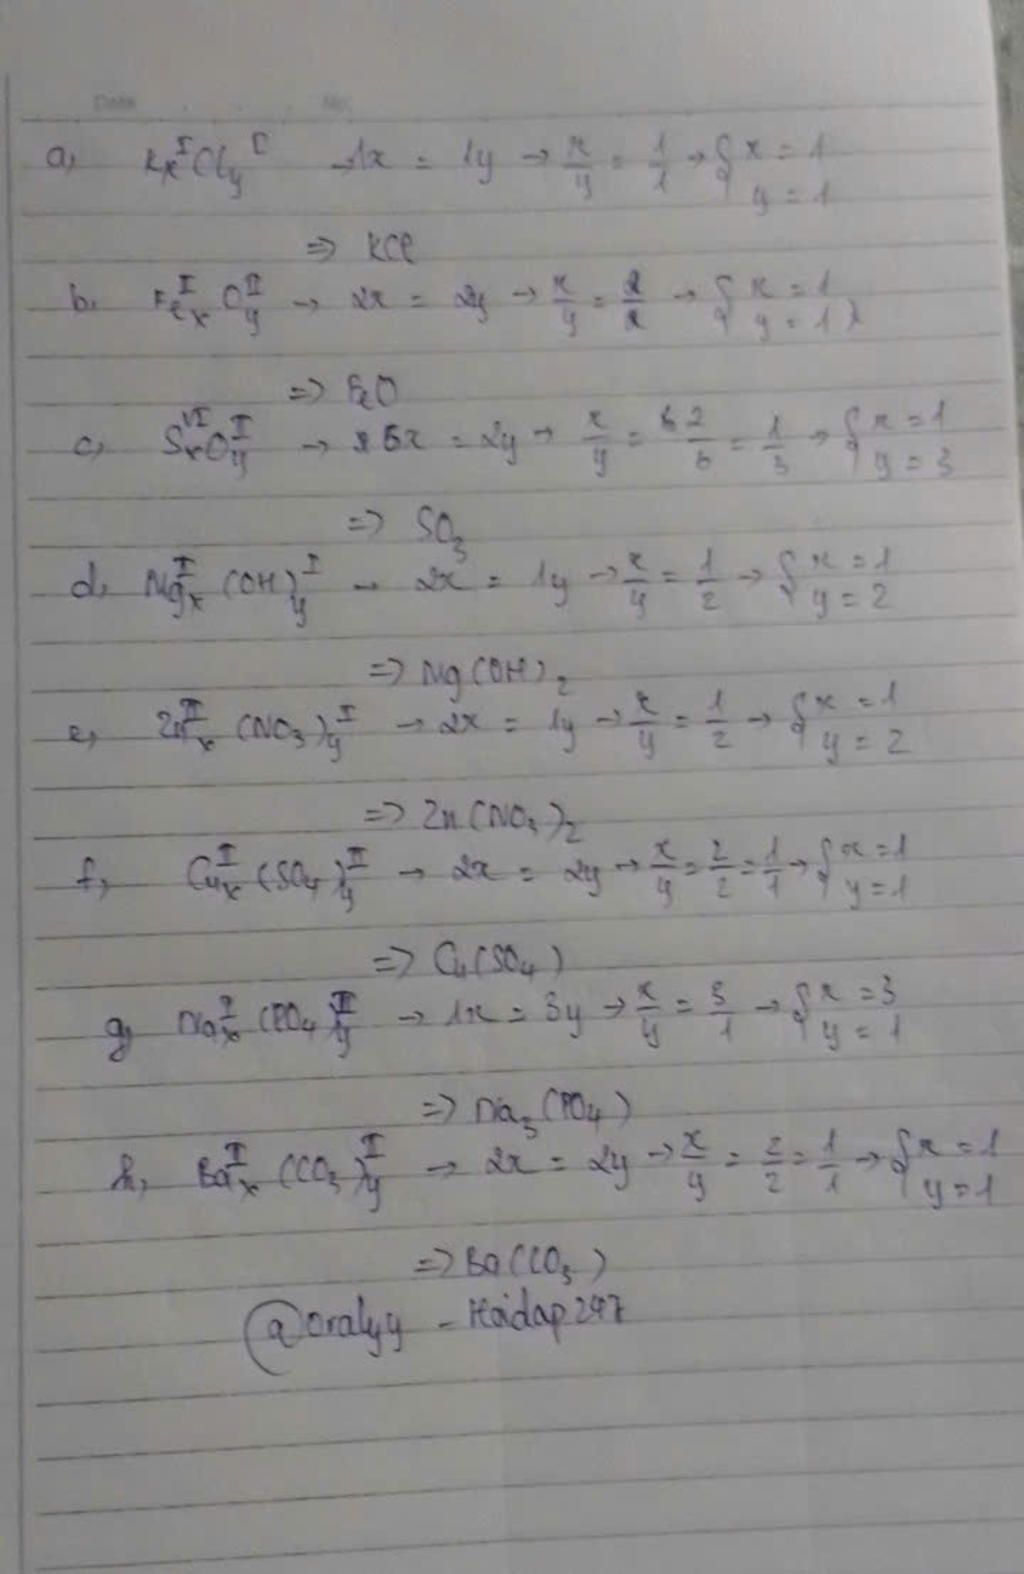 Date No.
a, Kx^I Cly^I → 1x = 1y → x/y = 1/1 → { x = 1 y = 1
=> KCl
b, Fex^II Oy^II → 2x = 2y → x/y = 2/2 → { x = 1 y = 1
=> FeO
c, Sx^VI Oy^II → 6x = 2y → x/y = 2/6 = 1/3 → { x = 1 y = 3
=> SO3
d, Mgx^II (OH)y^I → 2x = 1y → x/y = 1/2 → { x = 1 y = 2
=> Mg(OH)2
e, Znx^II (NO3)y^I → 2x = 1y → x/y = 1/2 → { x = 1 y = 2
=> Zn(NO3)2
f, Cux^II (SO4)y^II → 2x = 2y → x/y = 2/2 = 1/1 → { x = 1 y = 1
=> Cu(SO4)
g, Nax^I (PO4)y^III → 1x = 3y → x/y = 3/1 → { x = 3 y = 1
=> Na3(PO4)
h, Bax^II (CO3)y^II → 2x = 2y → x/y = 2/2 = 1/1 → { x = 1 y = 1
=> Ba(CO3)
@oralyy - Hoidap247